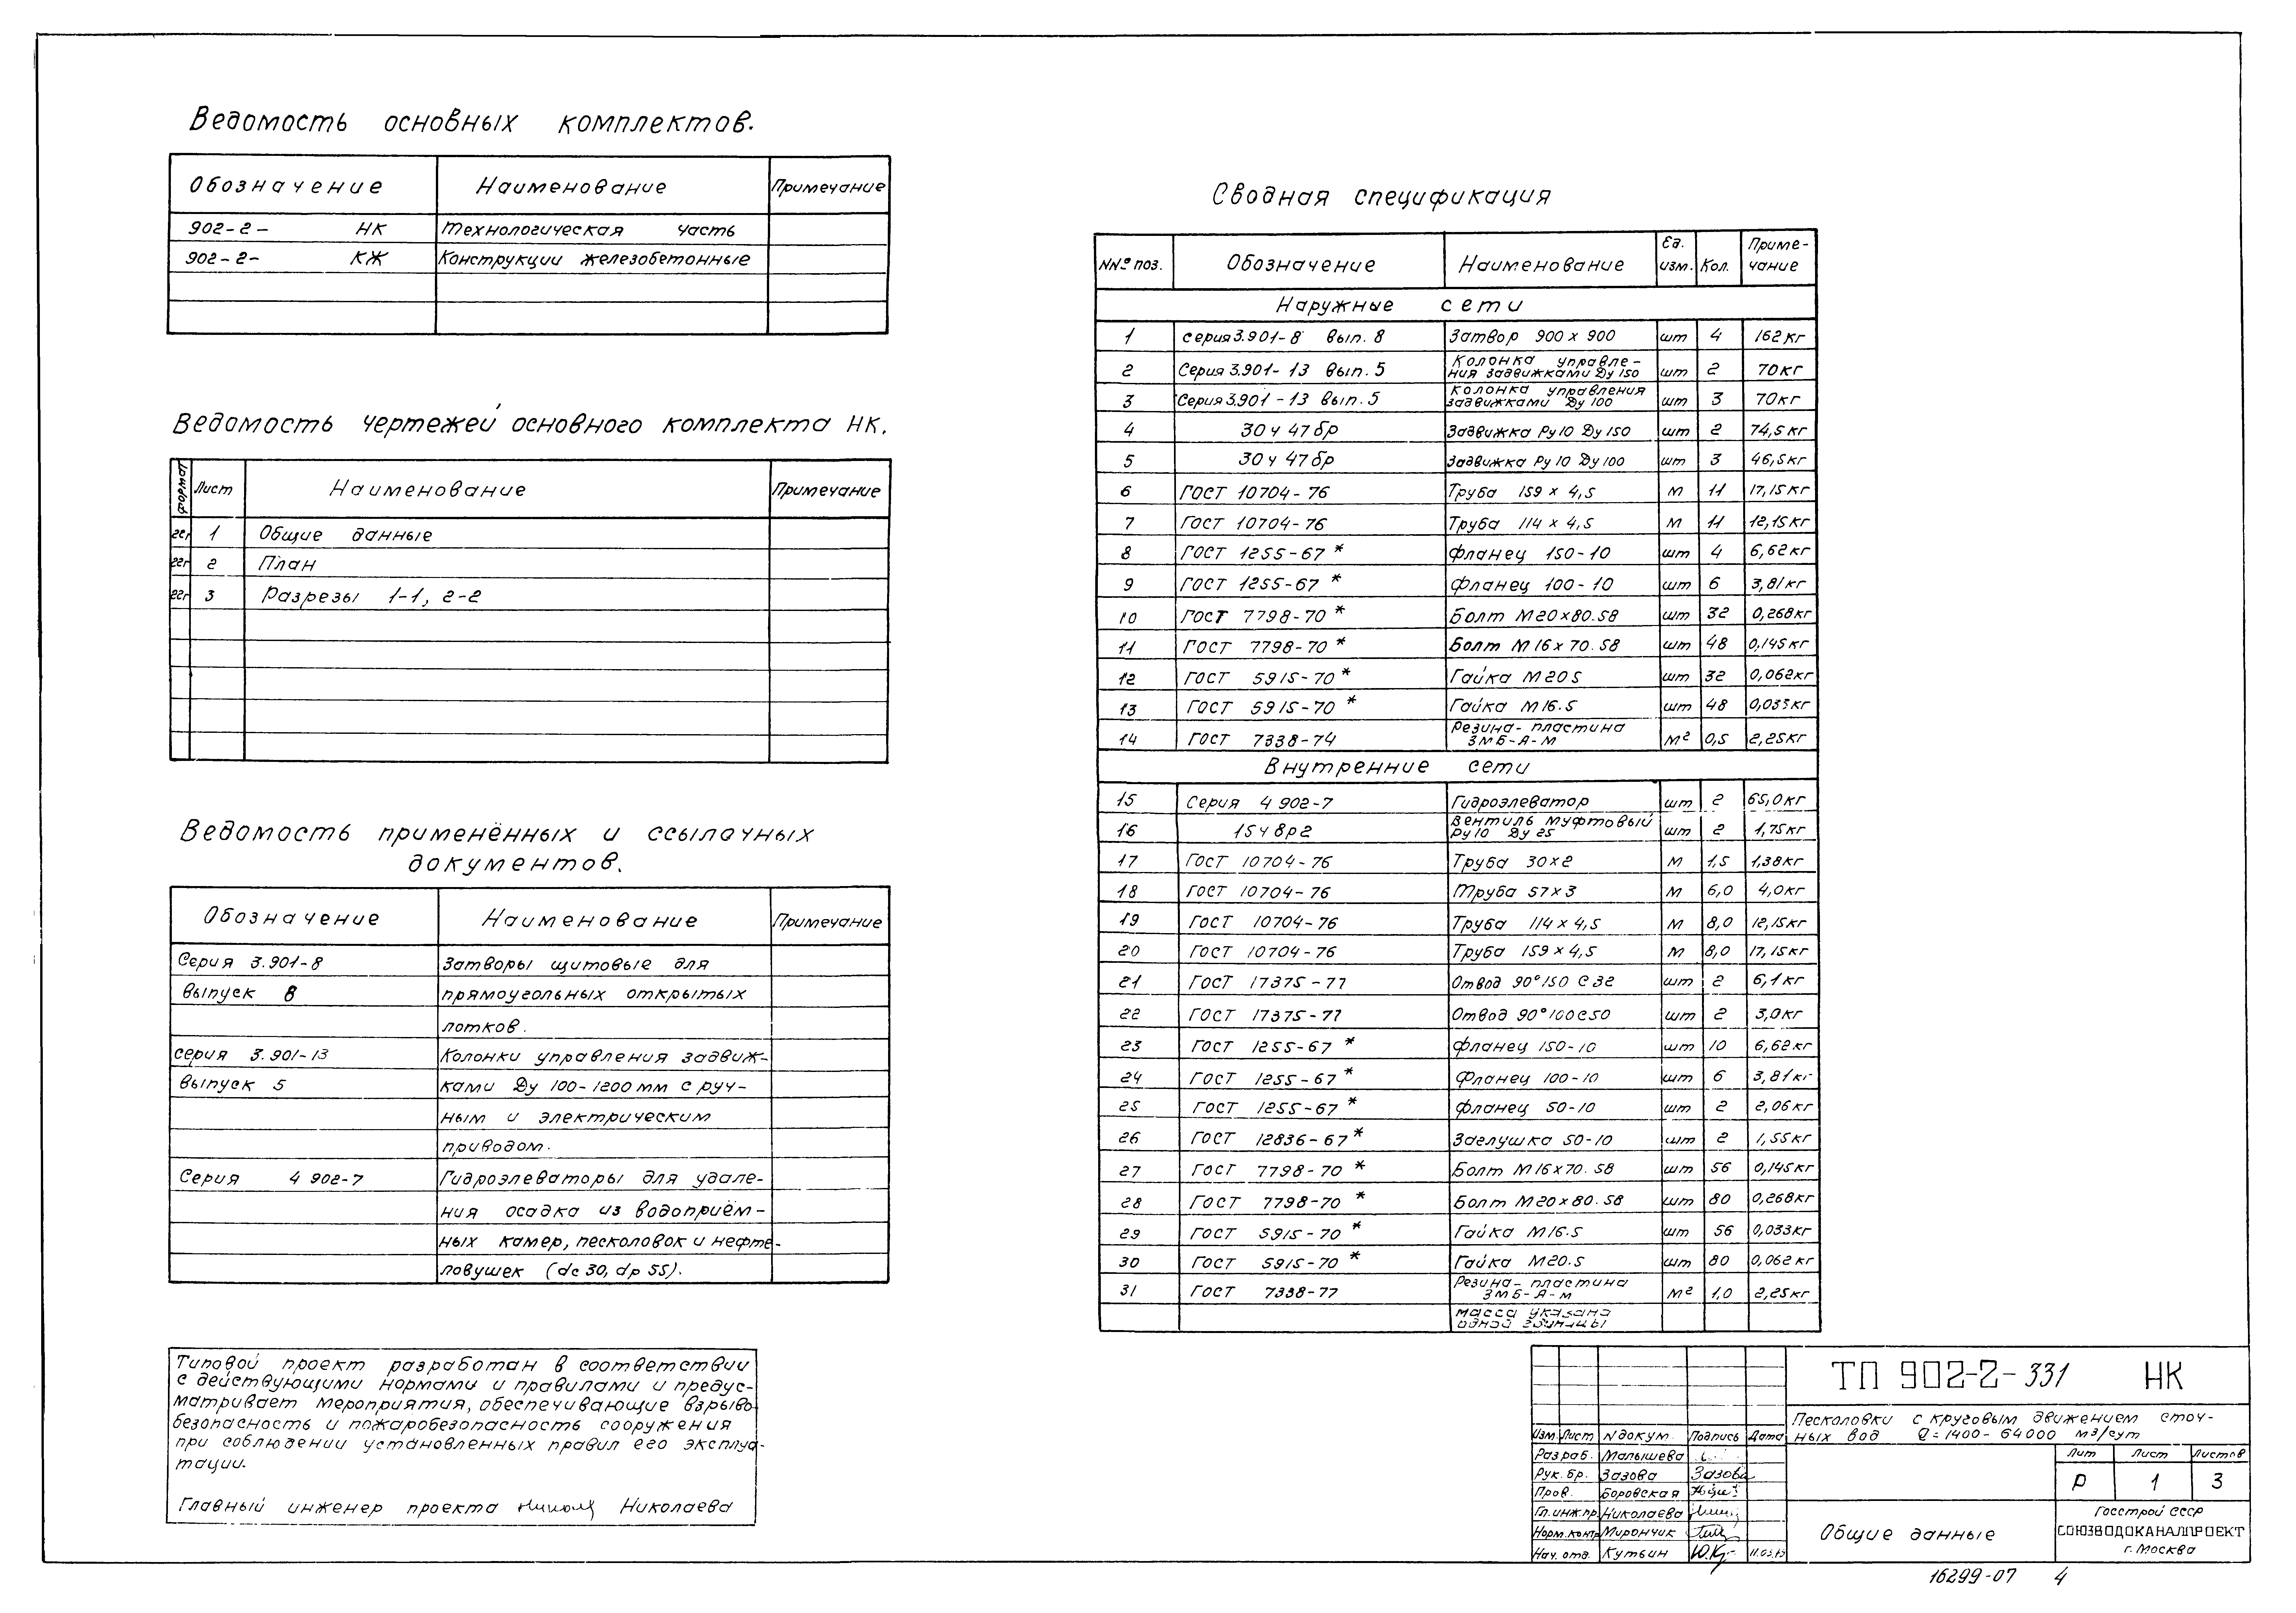 Ведомость основных комплектов.
Обозначение Наименование Примечание
902-2- НК Технологическая часть
902-2- КЖ Конструкции железобетонные
Ведомость чертежей основного комплекта НК.
формат Лист Наименование Примечание
22г 1 Общие данные
22г 2 План
22г 3 Разрезы 1-1, 2-2
Ведомость применённых и ссылочных
документов.
Обозначение Наименование Примечание
Серия 3.901-8 Затворы щитовые для
выпуск 8 прямоугольных открытых
лотков.
серия 3.901-13 Колонки управления задвиж-
выпуск 5 ками Ду 100-1200 мм с руч-
ным и электрическим
приводом.
Серия 4 902-7 Гидроэлеваторы для удале-
ния осадка из водоприём-
ных камер, песколовок и нефте-
ловушек (dс 30, dр 55).
Типовой проект разработан в соответствии
с действующими нормами и правилами и предус-
матривает мероприятия, обеспечивающие взрыво
безопасность и пожаробезопасность сооружения
при соблюдении установленных правил его эксплуа-
тации.
Главный инженер проекта Николаева
Сводная спецификация
NNº поз. Обозначение Наименование Ед. изм. Кол. Приме-
чание
Наружные сети
1 серия 3.901-8 вып. 8 Затвор 900 х 900 шт 4 162 кг
2 Серия 3.901-13 вып. 5 Колонка управле-
ния задвижками Ду 150 шт 2 70 кг
3 Серия 3.901-13 вып. 5 Колонка управления
задвижками Ду 100 шт 3 70 кг
4 30ч 47бр Задвижка Ру10 Ду 150 шт 2 74,5 кг
5 30ч 47бр Задвижка Ру 10 Ду 100 шт 3 46,5 кг
6 ГОСТ 10704-76 Труба 159 х 4,5 м 11 17,15 кг
7 ГОСТ 10704-76 Труба 114 х 4,5 м 11 12,15 кг
8 ГОСТ 1255-67 * Фланец 150-10 шт 4 6,62 кг
9 ГОСТ 1255-67 * Фланец 100-10 шт 6 3,81 кг
10 ГОСТ 7798-70 * Болт М20х80.58 шт 32 0,268 кг
11 ГОСТ 7798-70 * Болт М16х70.58 шт 48 0,145 кг
12 ГОСТ 5915-70 * Гайка М20 5 шт 32 0,062 кг
13 ГОСТ 5915-70 * Гайка М16.5 шт 48 0,033 кг
14 ГОСТ 7338-74 Резина-пластина
3МБ-А-М м² 0,5 2,25 кг
Внутренние сети
15 Серия 4 902-7 Гидроэлеватор шт 2 65,0 кг
16 15ч 8р2 Вентиль муфтовый
Ру 10 Ду 25 шт 2 1,75 кг
17 ГОСТ 10704-76 Труба 30х2 м 1,5 1,38 кг
18 ГОСТ 10704-76 Труба 57х3 м 6,0 4,0 кг
19 ГОСТ 10704-76 Труба 114 х 4,5 м 8,0 12,15 кг
20 ГОСТ 10704-76 Труба 159 х 4,5 м 8,0 17,15 кг
21 ГОСТ 17375-77 Отвод 90°150 С 32 шт 2 6,1 кг
22 ГОСТ 17375-77 Отвод 90°100с50 шт 2 3,0 кг
23 ГОСТ 1255-67 * Фланец 150-10 шт 10 6,62 кг
24 ГОСТ 1255-67 * Фланец 100-10 шт 6 3,81 кг
25 ГОСТ 1255-67 * Фланец 50-10 шт 2 2,06 кг
26 ГОСТ 12836-67 * Заглушка 50-10 шт 2 1,55 кг
27 ГОСТ 7798-70 * Болт М16х70.58 шт 56 0,145 кг
28 ГОСТ 7798-70 * Болт М20х80.58 шт 80 0,268 кг
29 ГОСТ 5915-70 * Гайка М16.5 шт 56 0,033 кг
30 ГОСТ 5915-70 * Гайка М20.5 шт 80 0,062 кг
31 ГОСТ 7338-77 Резина-пластина
3МБ-А-м м² 1,0 2,25 кг
масса указана
одной единицы
ТП 902-2-331 НК
Песколовки с круговым движением сточ-
ных вод Q=1400-64000 м3/сут
Изм. Лист N докум. Подпись Дата
Разраб. Малышева
Рук. бр. Зазова Зазова
Пров. Боровская
Гл. инж. пр. Николаева
Норм. контр Мирончик
Нач. отд. Кутьин
Лит Лист Листов
Р 1 3
Общие данные
Госстрой СССР
СОЮЗВОДОКАНАЛПРОЕКТ
г. Москва
16299-07 4